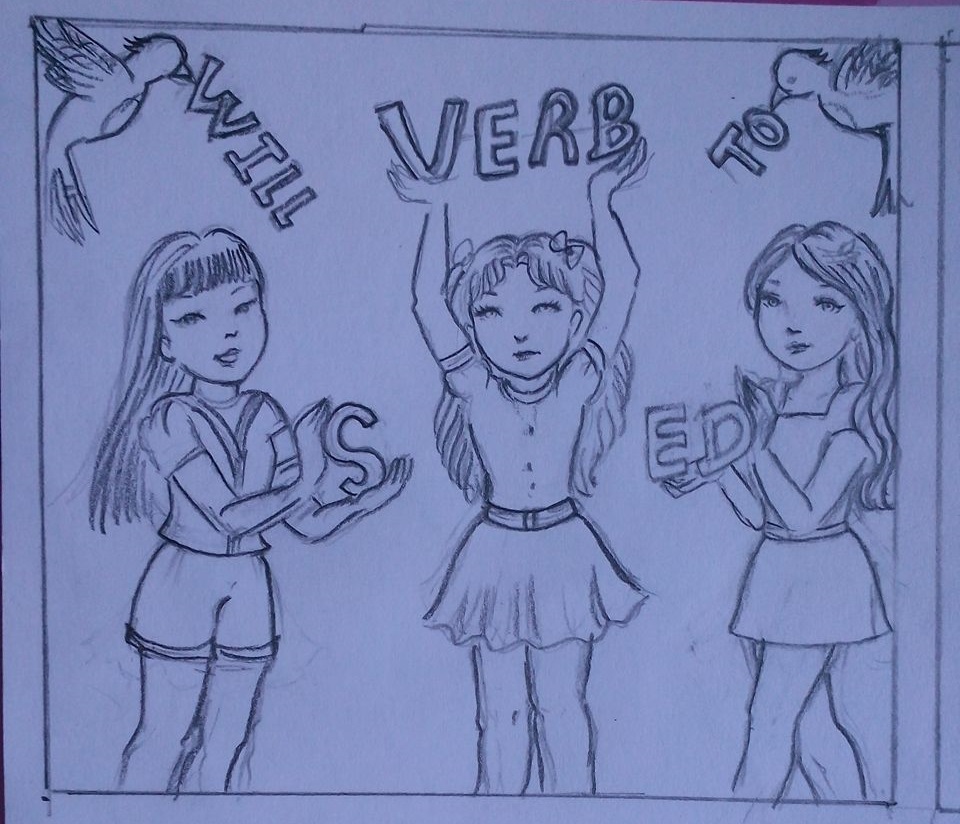 WILL
VERB
TO
S
ED